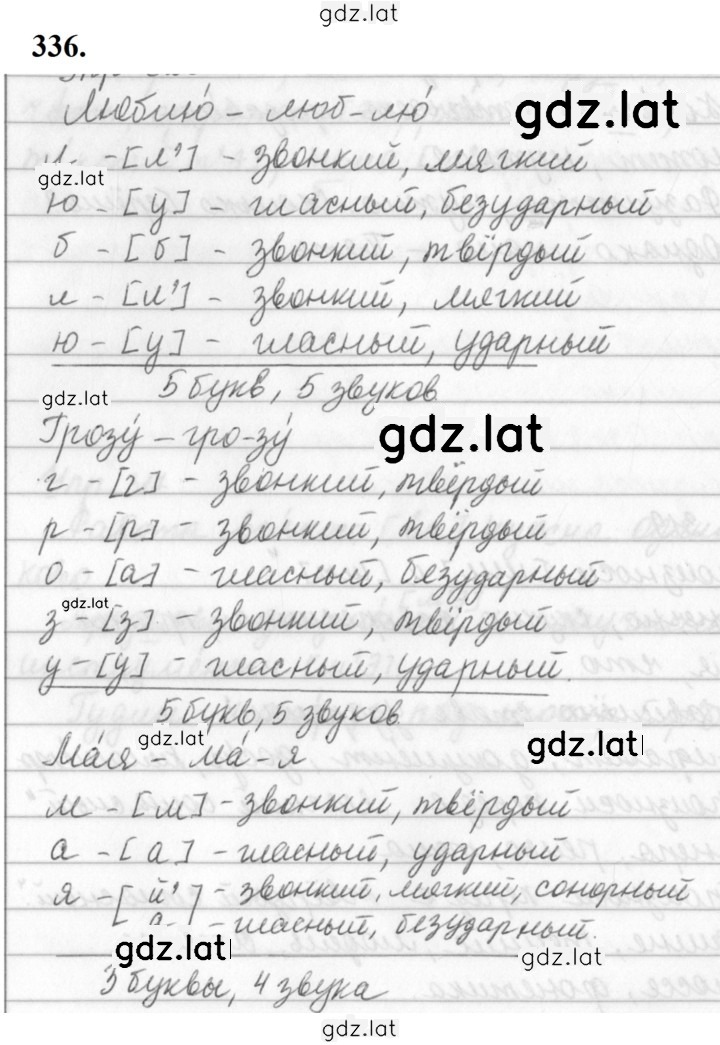 gdz.lat
336.
Люблю́ – люб-лю́
gdz.lat
- [л'] - звонкий, мягкий
gdz.lat
ю - [у] - гласный, безударный
б - [б] - звонкий, твёрдый
л - [л'] - звонкий, мягкий
ю - [у] - гласный, ударный
gdz.lat
5 букв, 5 звуков
Грозу́ – гро-зу́
gdz.lat
г - [г] - звонкий, твёрдый
р - [р] - звонкий, твёрдый
о - [а] - гласный, безударный
gdz.lat
з - [з] - звонкий, твёрдый
у - [у́] - гласный, ударный.
5 букв, 5 звуков
gdz.lat
gdz.lat
Ма́я – ма́-я
м - [м] - звонкий, твёрдый
а - [а] - гласный, ударный
я - [й'] - звонкий, мягкий, сонорный
- гласный, безударный.
gdz.lat
gdz.lat
3 буквы, 4 звука
gdz.lat